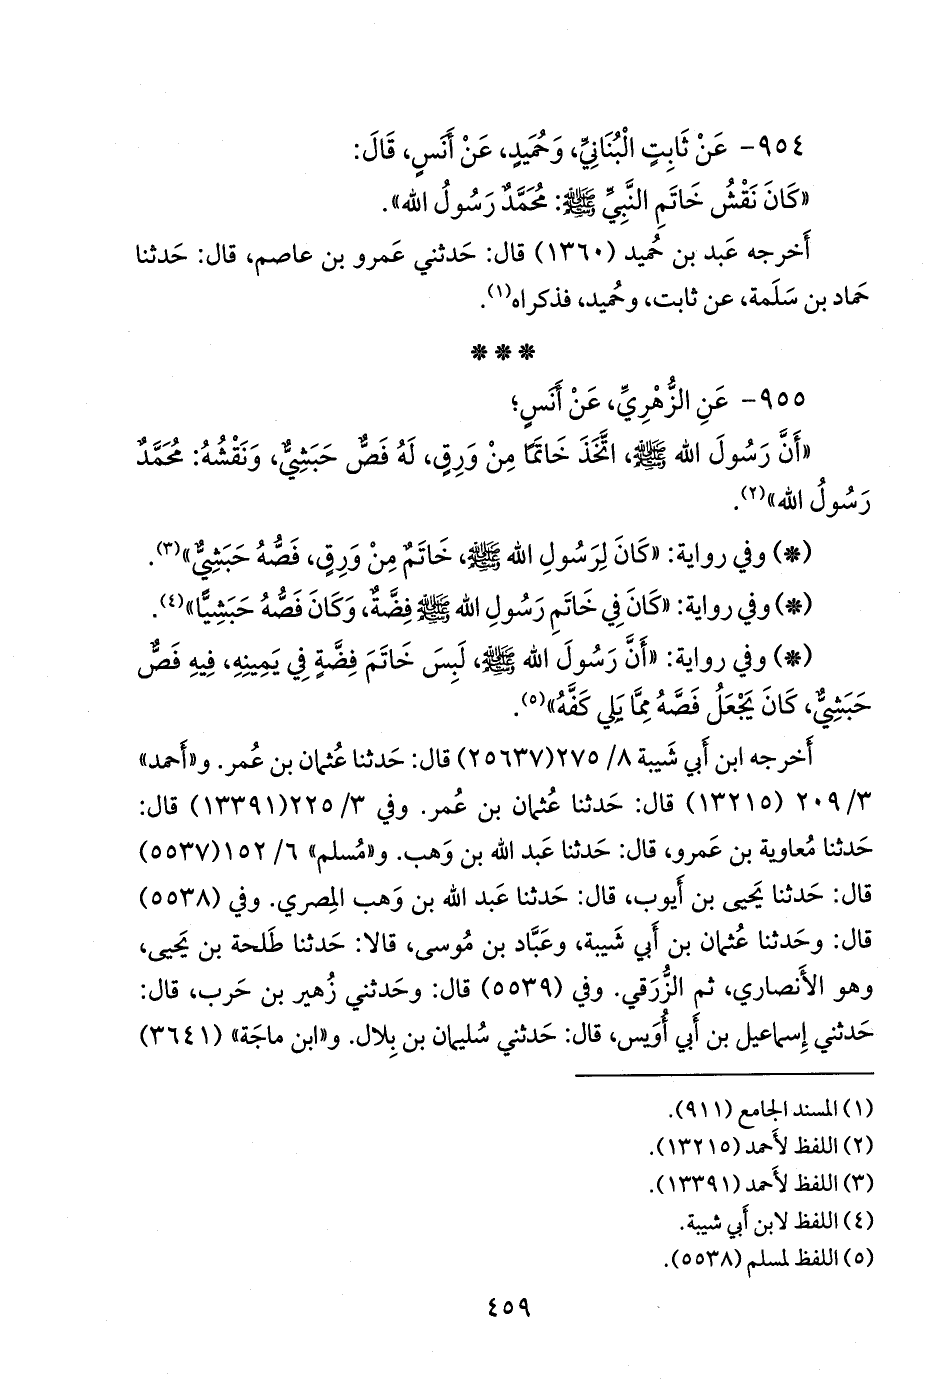 ٩٥٤- عَنْ ثَابِتٍ الْبُنَانِيِّ، وَحُمَيدٍ، عَنْ أَنَسٍ، قَالَ:
«كَانَ نَقْشُ خَاتَمِ النَّبِيِّ ﷺ: مُحَمَّدٌ رَسُولُ الله».
أَخرجه عَبد بن حُميد (١٣٦٠) قال: حَدثني عَمرو بن عاصم، قال: حَدثنا
حَماد بن سَلَمة، عن ثابت، وحُميد، فذكراه(١).
***
٩٥٥- عَنِ الزُّهْرِيِّ، عَنْ أَنَسٍ؛
«أَنَّ رَسُولَ الله ﷺ، اتَّخَذَ خَاتَمًا مِنْ وَرِقٍ، لَهُ فَصٌّ حَبَشِيٌّ، وَنَقْشُهُ: مُحَمَّدٌ
رَسُولُ الله»(٢).
(*) وفي رواية: «كَانَ لِرَسُولِ الله ﷺ، خَاتَمٌ مِنْ وَرِقٍ، فَصُّهُ حَبَشِيٌّ»(٣).
(*) وفي رواية: «كَانَ فِي خَاتَمِ رَسُولِ الله ﷺ فِضَّةٌ، وَكَانَ فَصُّهُ حَبَشِيًّا»(٤).
(*) وفي رواية: «أَنَّ رَسُولَ الله ﷺ، لَبِسَ خَاتَمَ فِضَّةٍ فِي يَمِينِهِ، فِيهِ فَصٌّ
حَبَشِيٌّ، كَانَ يَجْعَلُ فَصَّهُ مِمَّا يَلِي كَفَّهُ»(٥).
أَخرجه ابن أَبي شَيبة ٨/ ٢٧٥(٢٥٦٣٧) قال: حَدثنا عُثمان بن عُمر. و«أَحمد»
٣/ ٢٠٩ (١٣٢١٥) قال: حَدثنا عُثمان بن عُمر. وفي ٣/ ٢٢٥(١٣٣٩١) قال:
حَدثنا مُعاوية بن عَمرو، قال: حَدثنا عَبد الله بن وَهب. و«مُسلم» ٦/ ١٥٢(٥٥٣٧)
قال: حَدثنا يَحيى بن أَيوب، قال: حَدثنا عَبد الله بن وَهب المِصري. وفي (٥٥٣٨)
قال: وحَدثنا عُثمان بن أَبي شَيبة، وعَبَّاد بن مُوسى، قالا: حَدثنا طَلحة بن يَحيى،
وهو الأَنصاري، ثم الزُّرَقي. وفي (٥٥٣٩) قال: وحَدثني زُهير بن حَرب، قال:
حَدثني إِسماعيل بن أَبي أُوَيس، قال: حَدثني سُليمان بن بِلال. و«ابن ماجَة» (٣٦٤١)
(١) المسند الجامع (٩١١).
(٢) اللفظ لأَحمد (١٣٢١٥).
(٣) اللفظ لأَحمد (١٣٣٩١).
(٤) اللفظ لابن أَبي شيبة.
(٥) اللفظ لمسلم (٥٥٣٨).
٤٥٩